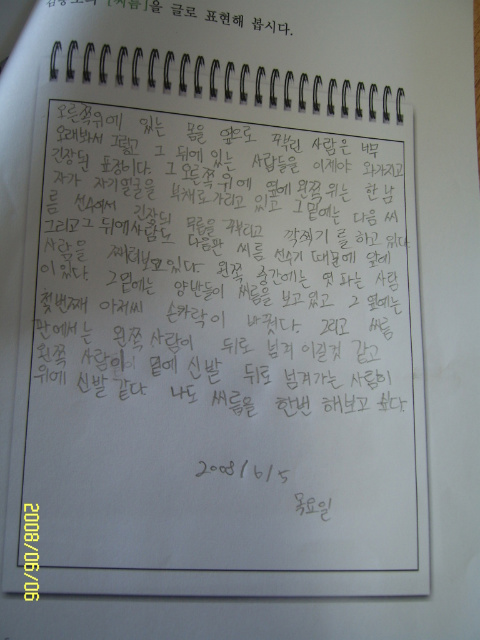 김홍도의 [씨름]을 글로 표현해 봅시다.
오른쪽위에 있는 몸을 앞으로 꾸부린 사람은 너무
오래봐서 그렇고 그 뒤에 있는 사람들은 이제야 와가지고
긴장된 표정이다. 그 오른쪽 위에 옆에 왼쪽 위는 한 남
자가 자기얼굴을 부채로 가리고 있고 그 밑에는 다음 씨
름 선수에서 긴장되 무릎을 꾸부리고 깍쥐기를 하고 있다
그리고 그 뒤에 사람도 다음판 씨름 선수기 때문에 앞에
사람을 째려보고 있다. 왼쪽 중간에는 엿 파는 사람
이 있다. 그 밑에는 양반들이 씨름을 보고 있고 그 옆에는
첫번째 아저씨 손가락이 바꼈다. 그리고 씨름
판에서는 왼쪽 사람이 뒤로 넘겨 이길것 같고
왼쪽 사람이 옆에 신발 뒤로 넘겨가는 사람이
위에 신발 같다. 나도 씨름을 한번 해보고 싶다.
2008/6/5
목요일
2008/06/06